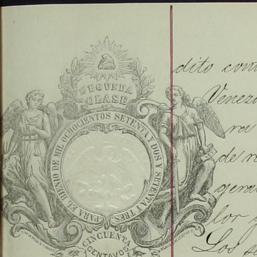 SEGUNDA
CLASE
PARA EL BIENIO DE MIL OCHOCIENTOS SETENTA Y DOS Y SETENTA Y TRES
CINCUENTA
CENTAVOS
dito con
Venezo
ra
de r
gene
lor
Los